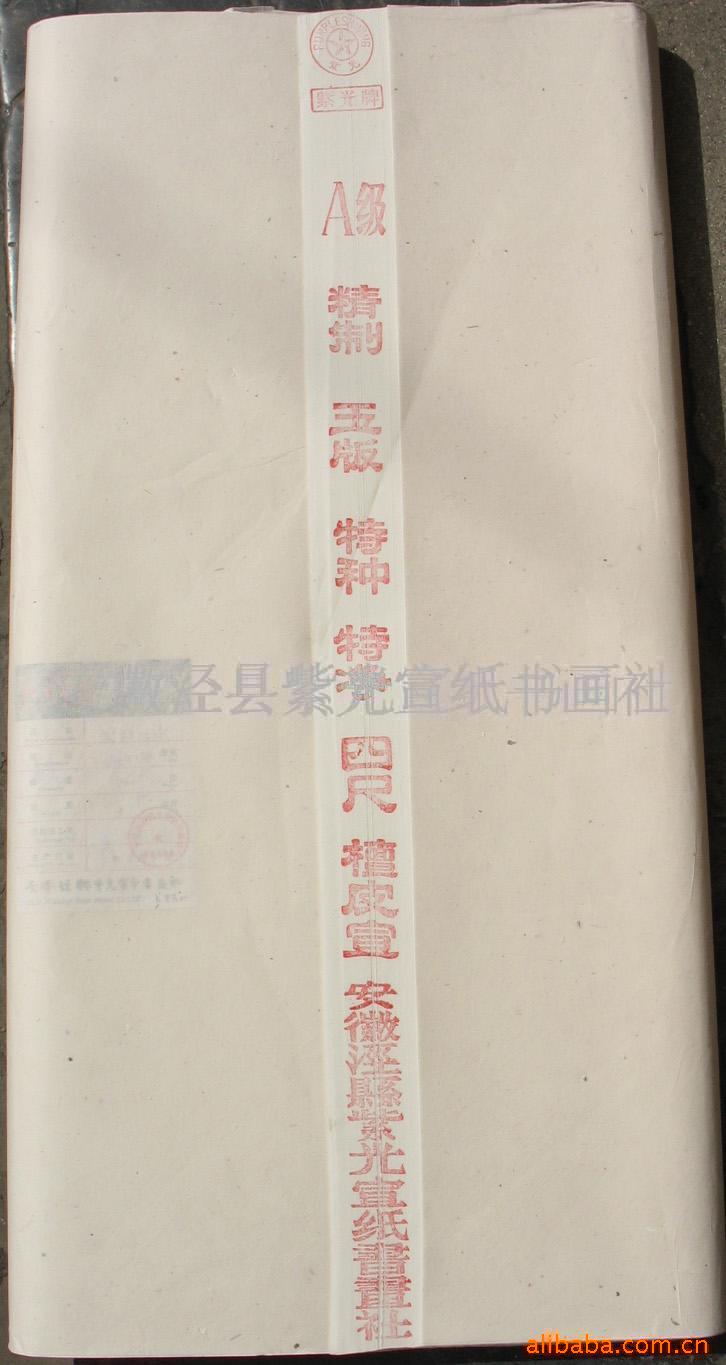 紫光
紫光牌
A级
精制
玉版
特种
特净
四尺
檀皮宣
安徽涇縣紫光宣纸書畫社
徽泾县紫光宣纸书画社
alibaba.com.cn